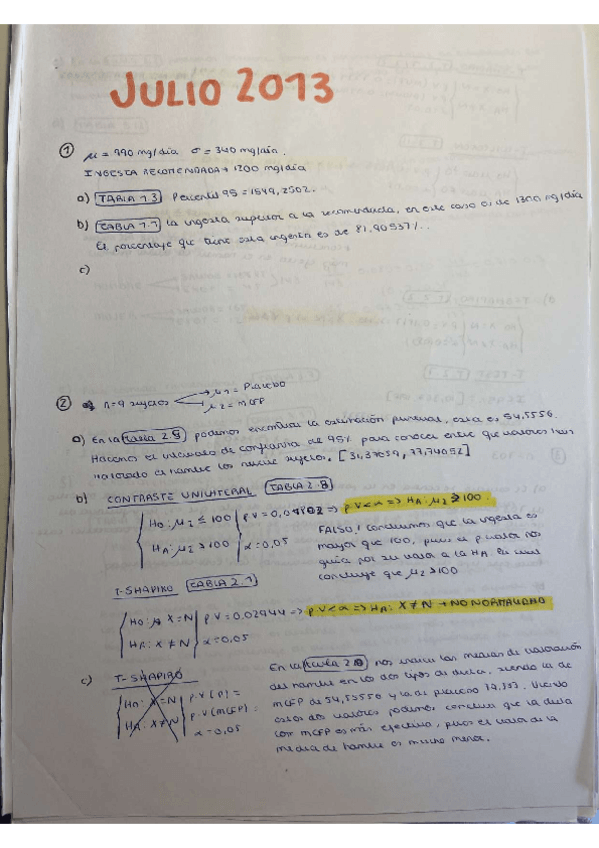 JULIO 2013
① μ = 990 mg/día σ = 340 mg/día.
INGESTA RECOMENDADA → 1200 mg/día
a) TABLA 1.3 Percentil 95 = 1549,2502.
b) TABLA 1.1 la ingesta superior a la recomendada, en este caso es de 1300 mg/día
El porcentaje que tiene esta ingesta es de 81,90537%.
c)
② n=9 sujetos → μ1 = Placebo
→ μ2 = mCPP
a) En la tabla 2.9 podemos encontrar la estimación puntual, esta es 54,5556.
Hacemos el intervalo de confianza de 95% para conocer entre que valores han
valorado el hambre los nueve sujetos. [31,37059, 77,74052]
b) CONTRASTE UNILATERAL TABLA 2.8
H0: μ2 ≤ 100 | pV = => pV<α => HA: μ2 > 100.
HA: μ2 > 100 | α = 0,05
FALSO! Concluimos que la ingesta es
mayor que 100, pues el p valor nos
guía por su valor a la HA. La cual
concluye que μ2 > 100
T-SHAPIRO TABLA 2.1
H0: X = N | pV = 0,02944 -> pV<α => HA: X ≠ N → NO NORMALIDAD
HA: X ≠ N | α = 0,05
c) T-SHAPIRO
H0: X = N | p.V (P) =
HA: X ≠ N | p.V (mCPP) =
α = 0,05
En la tabla 2.9 nos indican las medias de valoración
del hambre en los dos tipos de dieta, siendo la de
mCPP de 54,55550 y la de placebo 79,333. Viendo
estos dos valores podemos concluir que la dieta
con mCPP es más efectiva, pues el valor de la
media de hambre es mucho menor.